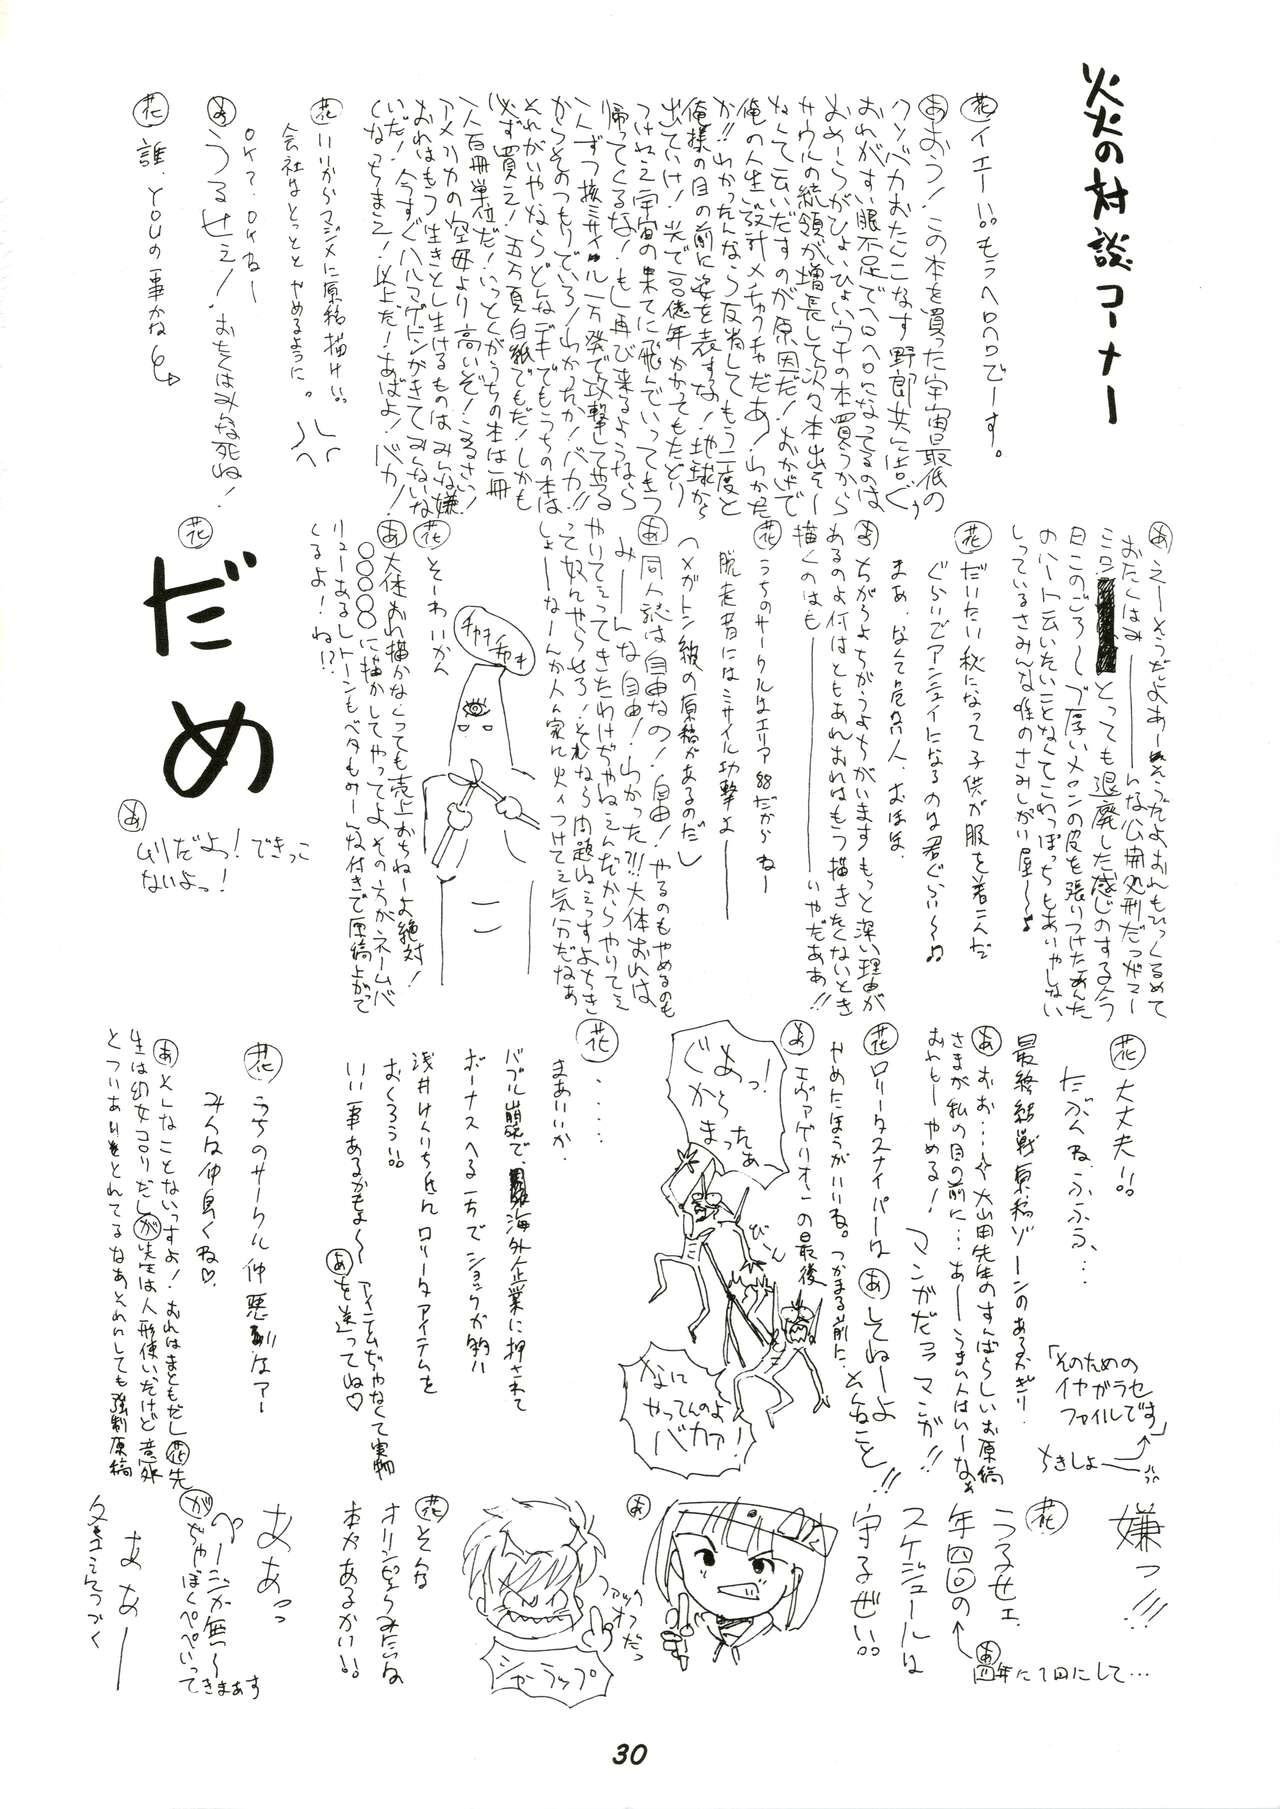 炎の対談コーナー
花 イエーい。もうヘロヘロでーす。
あ おう！この本を買った宇宙最低の
クソバカおたんこなす野郎共に告ぐぅ
おれがすい眠不足でヘロヘロになってるのは
おめーらがひょいひょいウチの本買うから
サークルの統領が増長して次々本出そー
なんて云いだすのが原因だ！おかげで
俺の人生設計メチャクチャだあ！わかった
か!!わかったんなら反省してもう二度と
俺様の目の前に姿を表すな！地球から
出ていけ！光で百億年かかってもたどり
つけねえ宇宙の果てに飛んでいってきっ
帰ってくるな！もし再び来るようなら
一人ずつ核ミサイル一万発で攻撃してやる
からそのつもりでいろ！わかったか！バカ!!
それがいやならどんなデキでもうちの本は
必ず買え！五万頁白紙でもだ！しかも
一人百冊単位だ！いっとくがうちの本は一冊
アメリカの空母より高いぞ！うるさい！
おれはもう生きとし生けるものはみんな嫌
いだ！今すぐハルマゲドンがきてみんないな
くなっちまえ！以上だ！あばよ！バカ！
花 いいからマジメに原稿描けい。
会社はとっととやめるように。
OK？OKねー
あ うるせえ！おたくはみんな死ね！
花 誰、YOUの事かね
あ えーそうだよあーそうだよおれもひっくるめて
おたくはみーーーんな公開処刑だっぜー
ミロン とっても退廃した感じのする今
日このごろーブ厚いメンの皮を張りつけたあんた
のハート云いたいことなくてこわっぽっちもありゃしない
しっているさみんな唯のさみしがい屋〜♪
花 だいたい秋になって子供が服を着こんだ
ぐらいでアンニュイになるのは君ぐらい〜♫
まあ、なくて
あ ちがうよちがうよちがいますもっと深い理由が
あるのよ何はともあれおれはもう描きたくないとき
描くのはもーーーーーーーいやだああ!!
花 うちのサークルはエリア88だからねー
脱走者にはミサイル功撃よーーー
（メガトン級の原稿があるのだし
あ 同人誌は自由なの！自由！やるのもやめるのも
みーーんな自由！わかった?!!大体おれは
やりてえってきたわけぢゃねえんだからやりてえ
って奴んやらせろ！それなら問題ねえっすよちき
しょーなーんか人ん家に火ィつけてえ気分だなぁ
花 そーわいかん
チャキチャキ
あ 大体おれ描かなくっても売上おちねーよ絶対！
〇〇〇〇に描かしてやってよ。その方がネームバ
リューあるしトーンもベタもみーんな付きで原稿上がって
くるよ！ね!?
花 だめ
あ ムリだよっ！できっこ
ないよっ！
花 大丈夫!!
たぶんね、ふふう、……
最終結戦原稿ゾーンのあるかぎり
「そのための
イヤガラセ
ファイルです」
ちきしょー
あ おお……大山田先生のすんばらしいお原稿
さまが私の目の前に…あーーうまい人はいーなぁ
おれもーやめる！
マンガだってマンガ!!
花 ロリータスナイパーは
やめたほうがいいね。つかまる前に、
あ してねーよ
んなこと!!
あ エヴァゲリオンの最後
ぐあっ！
からまったぁ
びーん
なに
やってんのよ
バカァ！
花 ・・・・・
まあいいか、
バブル崩壊で、海外企業に押されて
ボーナスへる一方でショックか
花 うちのサークル仲悪いなアー
みんな仲良くね♡
とついあいをとれてるなあそれにしても強制原稿
嫌っ!!!
花 うるせエ
年四回の
スケジュールは
守るぜい。
あ 四年に1回にして…
あ ファック
オフだっ
シャーラップ
花 そんな
オリンピックみたいな
本があるかい。
ああっ
ページが無〜
が ぢゃーぼくペペいって
きまぁす
あなーーー